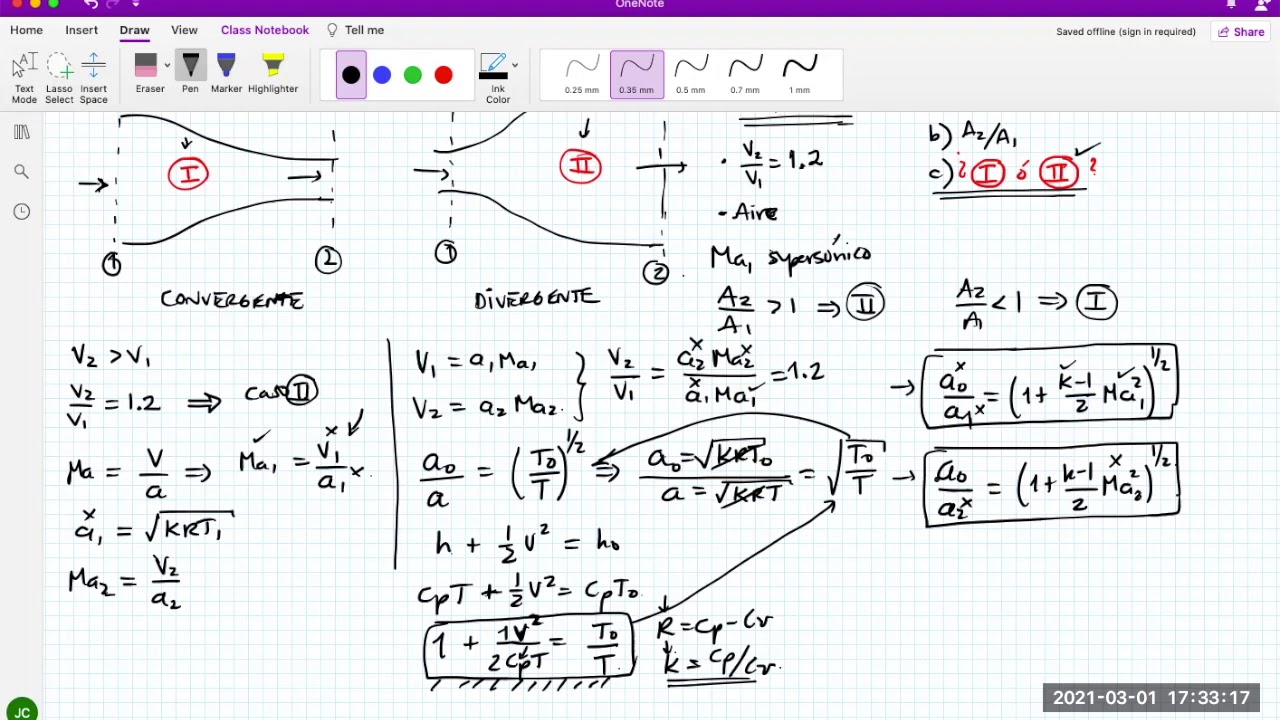 OneNote
Home Insert Draw View Class Notebook Tell me
Saved offline (sign in required) Share
Text Mode
Lasso Select
Insert Space
Eraser
Pen
Marker
Highlighter
Ink Color
0.25 mm 0.35 mm 0.5 mm 0.7 mm 1 mm
I
1
2
CONVERGENTE
II
1
2
DIVERGENTE
• V₂/V₁ = 1.2
• Aire
b) A₂/A₁
c) ¿ I ó II ✓ ?
Ma₁ supersónico
A₂/A₁ > 1 ⇒ II
A₂/A₁ < 1 ⇒ I
V₂ > V₁
V₂/V₁ = 1.2 ⇒ caso II
Ma = V/a ⇒ Ma₁ = V₁/a₁
a₁ = √KRT₁
Ma₂ = V₂/a₂
V₁ = a₁ Ma₁
V₂ = a₂ Ma₂
V₂/V₁ = a₂ Ma₂/a₁ Ma₁ = 1.2
a₀/a = (T₀/T)^1/2 ⇒ a₀ = √KRT₀ / a = √KRT = √T₀/T
h + 1/2 V² = h₀
CpT + 1/2 V² = CpT₀
1 + 1V²/2CpT = T₀/T
R = Cp - Cv
k = Cp/Cv
→ a₀/a₁ = (1 + k-1/2 Ma₁²)^1/2
→ a₀/a₂ = (1 + k-1/2 Ma₂²)^1/2
JC
2021-03-01 17:33:17